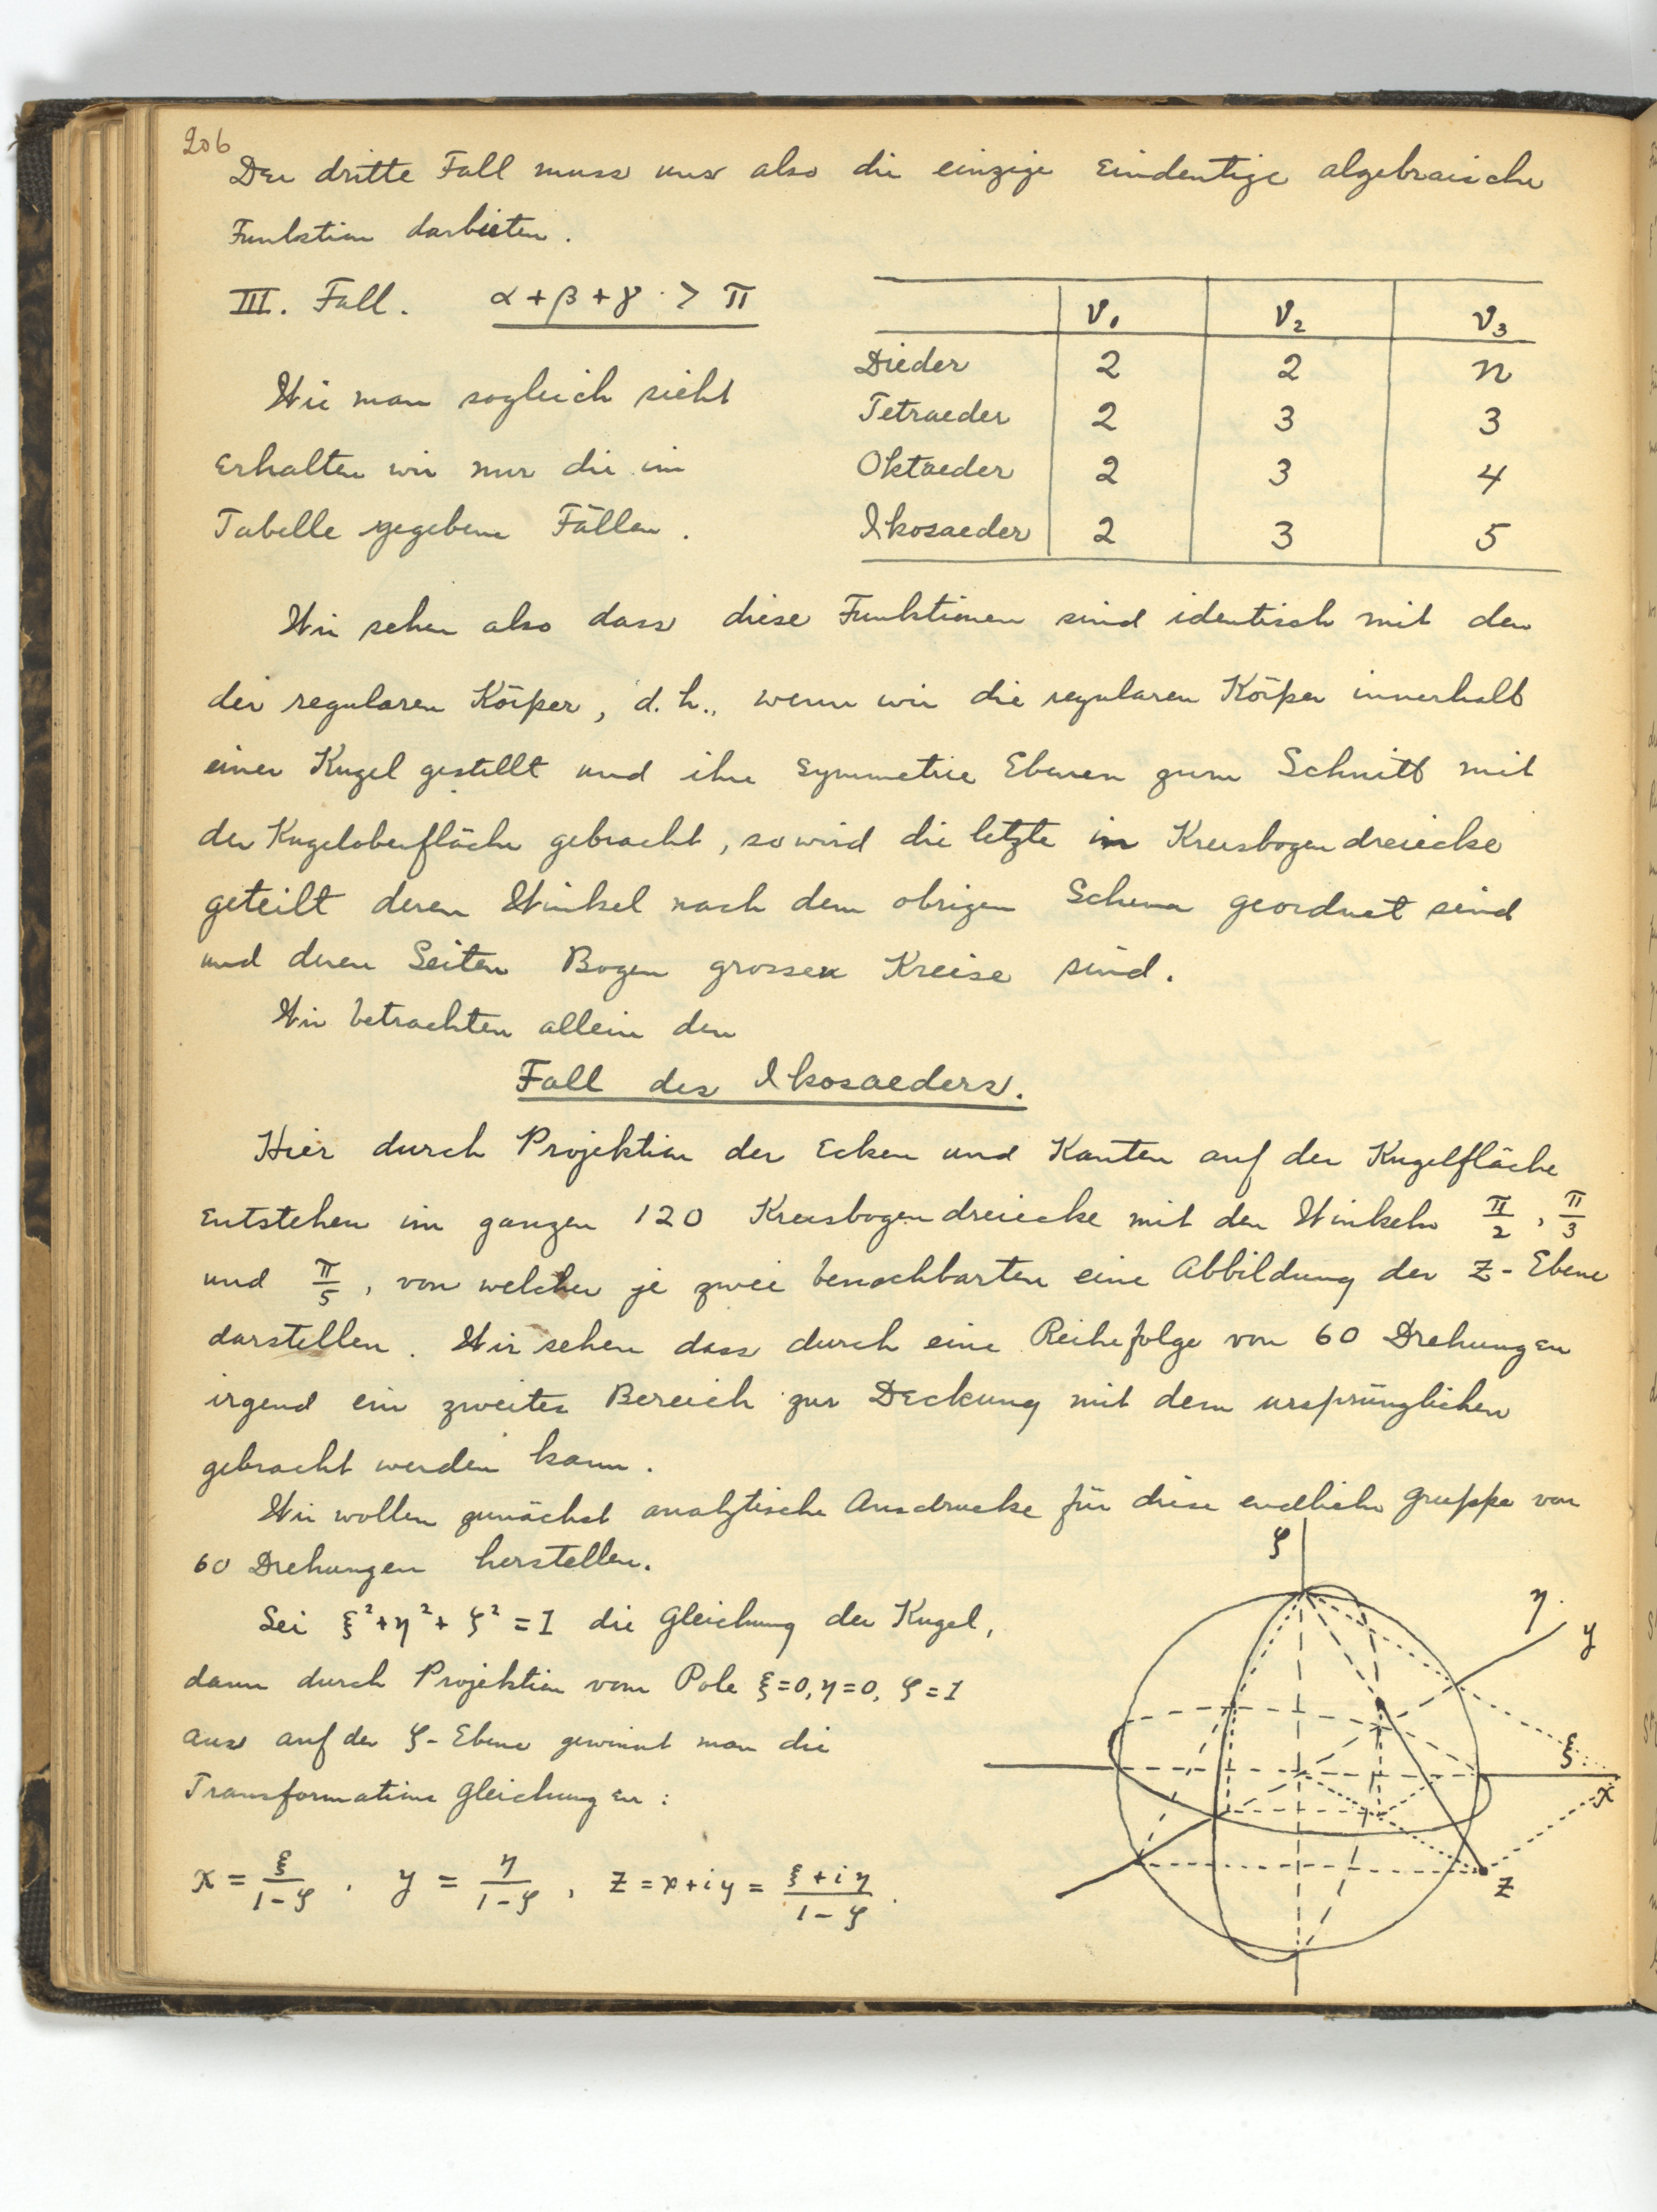 206
Der dritte Fall muss uns also die einzige eindeutige algebraische
Funktion darbieten.
III. Fall. α + β + γ > π
ν₁ ν₂ ν₃
Dieder 2 2 n
Tetraeder 2 3 3
Oktaeder 2 3 4
Ikosaeder 2 3 5
Wie man sogleich sieht
erhalten wir nur die im
Tabelle gegebene Fällen.
Wir sehen also dass diese Funktionen sind identisch mit den
der regularen Körper, d. h., wenn wir die regularen Körper innerhalb
einer Kugel gestellt und ihre Symmetrie Ebenen zum Schnitt mit
der Kugeloberfläche gebracht, so wird die letzte in Kreisbogendreiecke
geteilt deren Winkel nach dem obrigen Schema geordnet sind
und deren Seiten Bogen grossen Kreise sind.
Wir betrachten allein den
Fall des Ikosaeders.
Hier durch Projektion der Ecken und Kanten auf der Kugelfläche
entstehen im ganzen 120 Kreisbogendreiecke mit den Winkeln π/2, π/3
und π/5, von welchen je zwei benachbarten eine Abbildung der z-Ebene
darstellen. Wir sehen dass durch eine Reihefolge von 60 Drehungen
irgend ein zweites Bereich zur Deckung mit dem ursprünglichen
gebracht werden kann.
Wir wollen zunächst analytische Ausdrucke für diese endliche Gruppe von
60 Drehungen herstellen.
Sei ξ² + η² + ζ² = 1 die Gleichung der Kugel,
dann durch Projektion vom Pole ξ=0, η=0, ζ=1
aus auf der ζ-Ebene gewinnt man die
Transformations gleichungen:
x = ξ/(1-ζ), y = η/(1-ζ), z = x+iy = (ξ+iη)/(1-ζ).
ζ
η
y
ξ
x
z